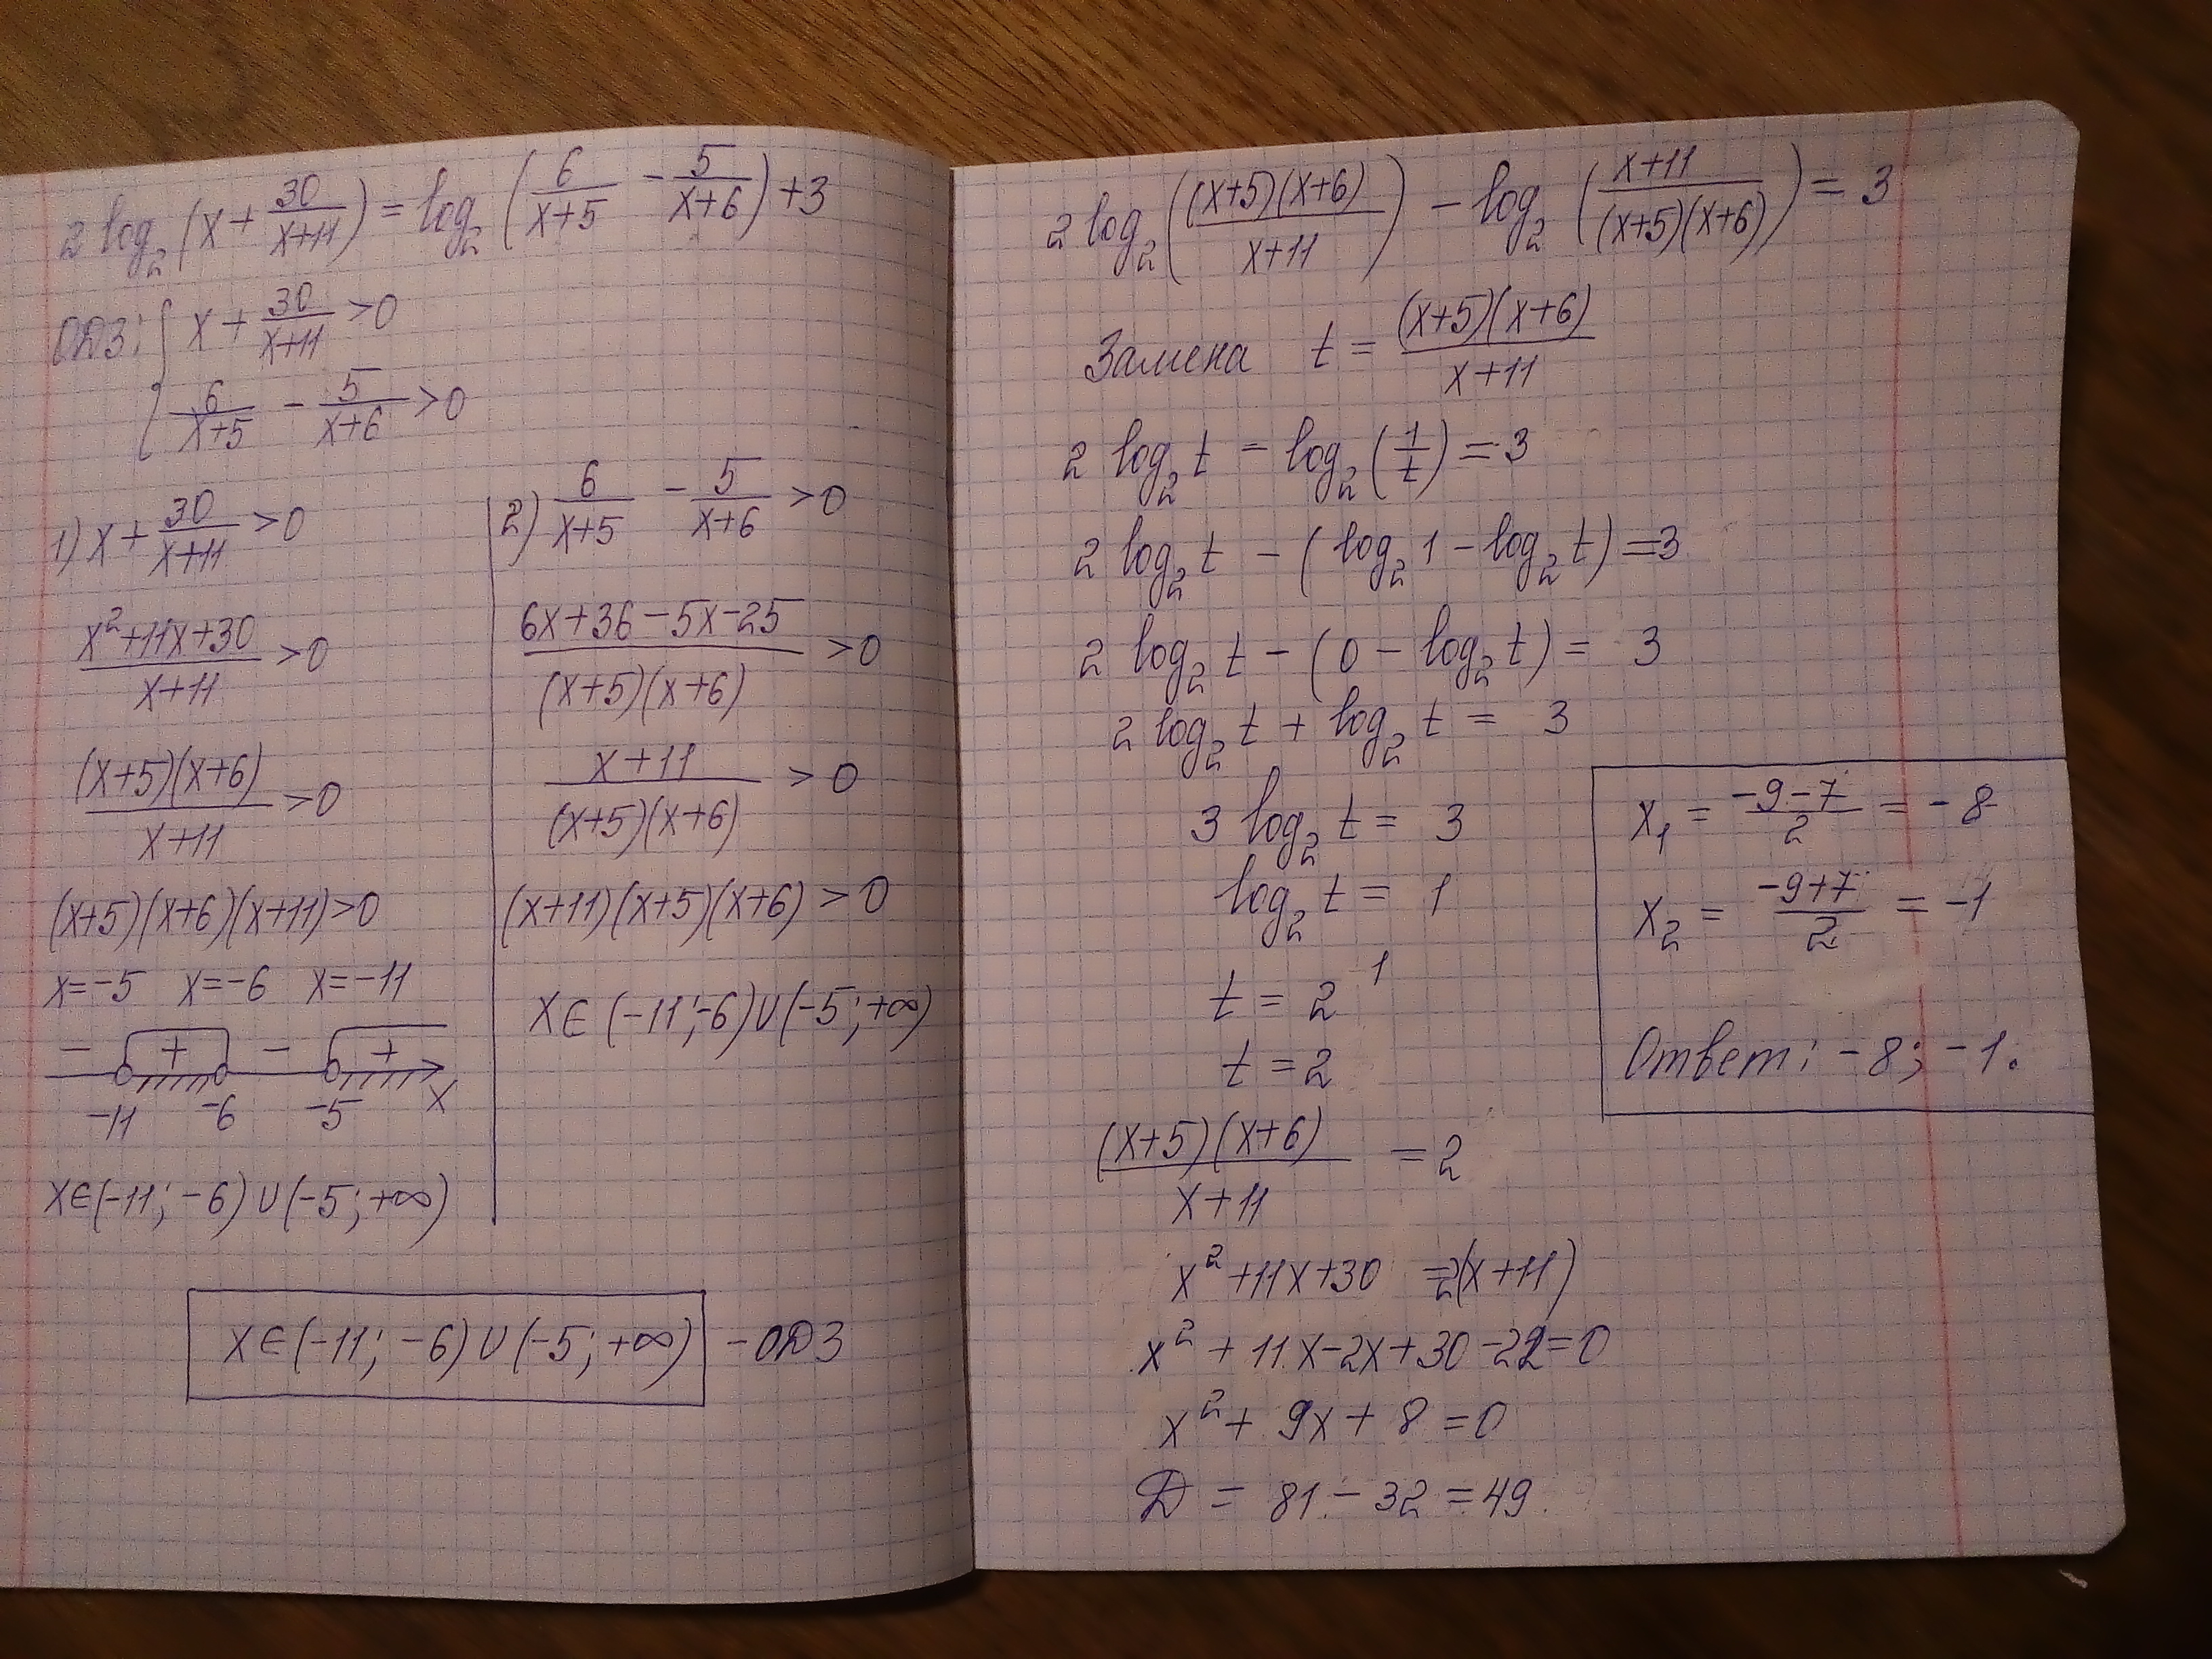 2 log₂ (x + 30/(x+11)) = log₂ (6/(x+5) - 5/(x+6)) + 3
ОДЗ: { x + 30/(x+11) > 0
{ 6/(x+5) - 5/(x+6) > 0
1) x + 30/(x+11) > 0
(x²+11x+30)/(x+11) > 0
((x+5)(x+6))/(x+11) > 0
(x+5)(x+6)(x+11) > 0
x=-5 x=-6 x=-11
- + - +
-11 -6 -5 x
x∈(-11; -6)∪(-5; +∞)
2) 6/(x+5) - 5/(x+6) > 0
(6x+36-5x-25)/((x+5)(x+6)) > 0
(x+11)/((x+5)(x+6)) > 0
(x+11)(x+5)(x+6) > 0
x∈(-11;-6)∪(-5;+∞)
x∈(-11; -6)∪(-5; +∞) - ОДЗ
2 log₂ (((x+5)(x+6))/(x+11)) - log₂ ((x+11)/((x+5)(x+6))) = 3
Замена t = ((x+5)(x+6))/(x+11)
2 log₂ t - log₂ (1/t) = 3
2 log₂ t - (log₂ 1 - log₂ t) = 3
2 log₂ t - (0 - log₂ t) = 3
2 log₂ t + log₂ t = 3
3 log₂ t = 3
log₂ t = 1
t = 2¹
t = 2
((x+5)(x+6))/(x+11) = 2
x² + 11x + 30 = 2(x+11)
x² + 11x - 2x + 30 - 22 = 0
x² + 9x + 8 = 0
D = 81 - 32 = 49
x₁ = (-9-7)/2 = -8
x₂ = (-9+7)/2 = -1
Ответ: -8; -1.